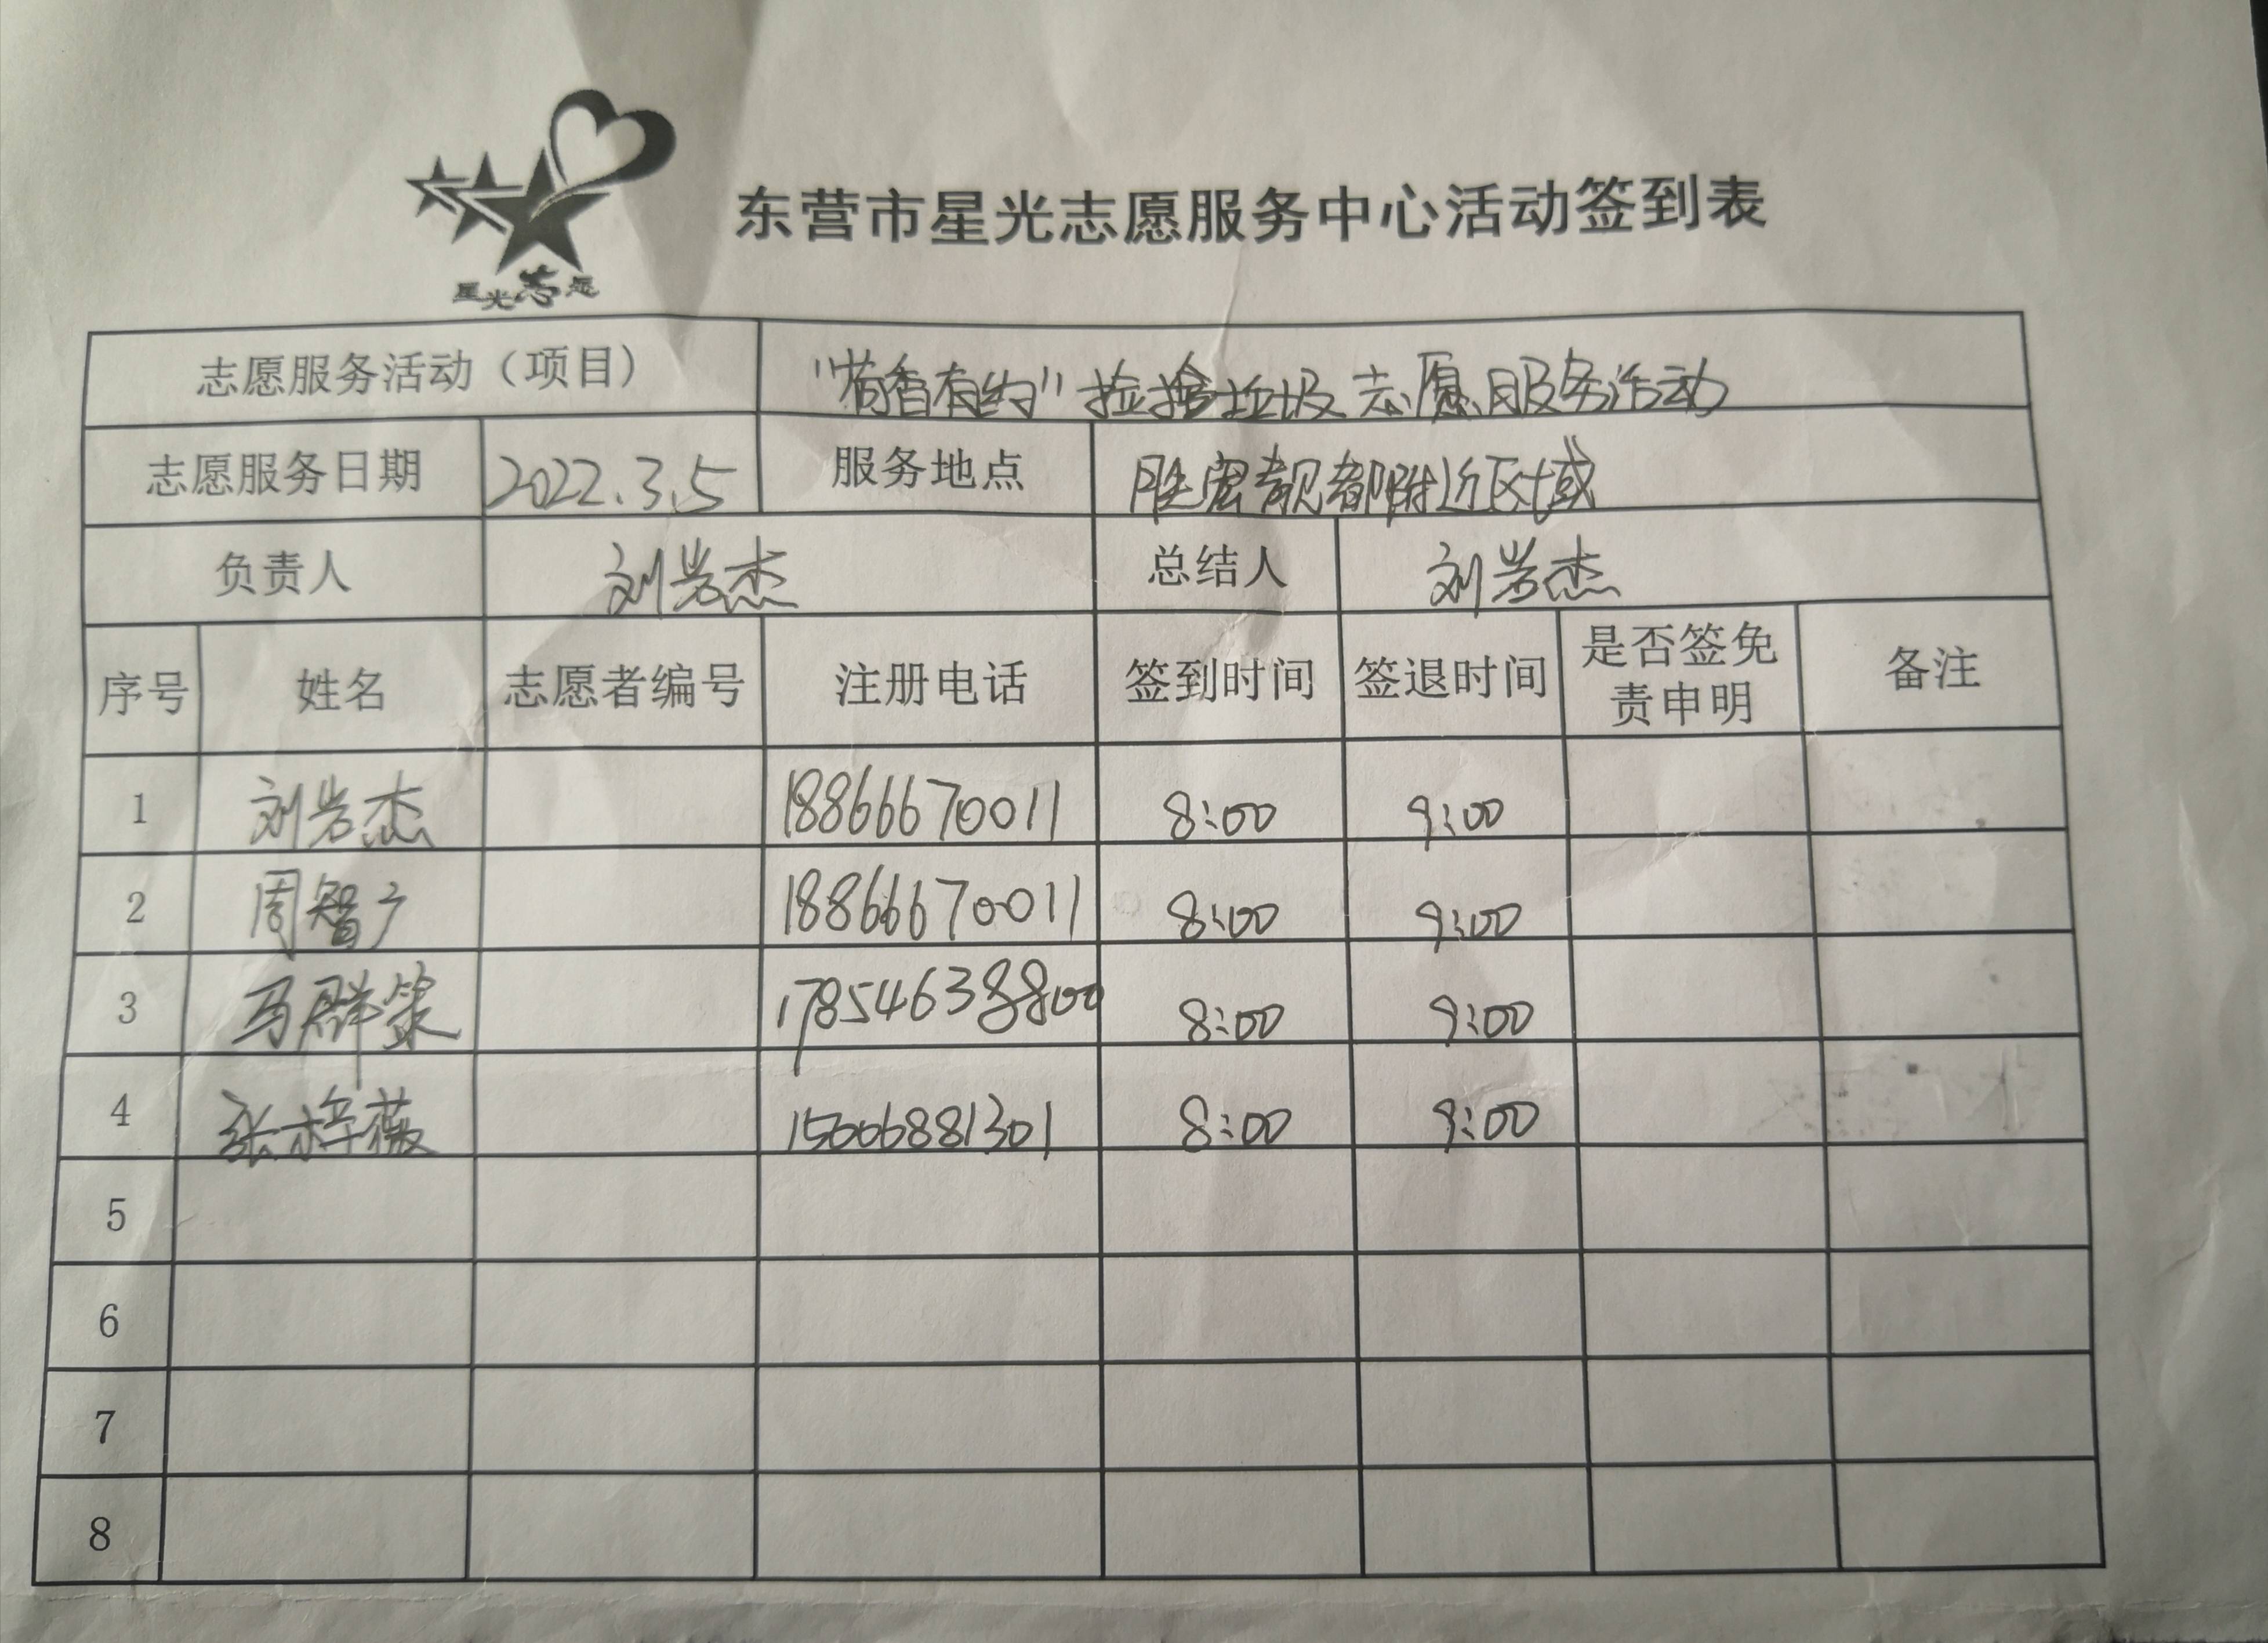 东营市星光志愿服务中心活动签到表
星光志愿
志愿服务活动（项目） "荷香有约"捡拾垃圾志愿服务活动
志愿服务日期 2022.3.5 服务地点 胜宏靓都附近区域
负责人 刘岩杰 总结人 刘岩杰
序号 姓名 志愿者编号 注册电话 签到时间 签退时间 是否签免责申明 备注
1 刘岩杰 18866670011 8:00 9:00
2 周智广 18866670011 8:00 9:00
3 马群策 17854638800 8:00 9:00
4 张梓薇 15606881301 8:00 9:00
5
6
7
8